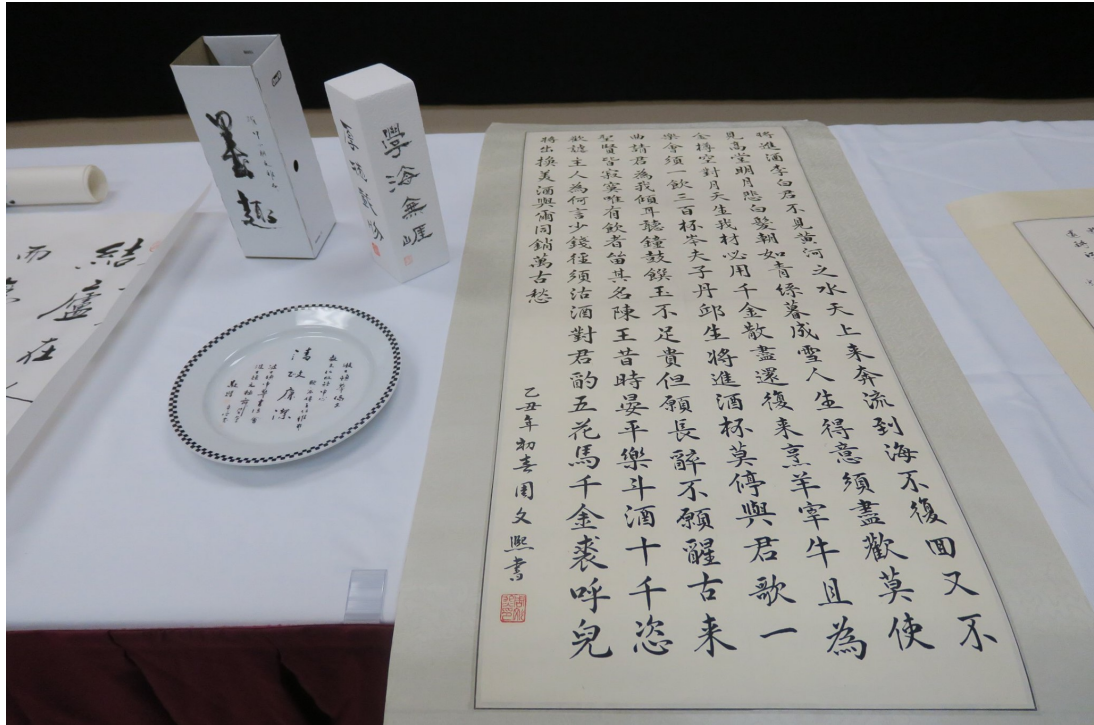 墨趣
學海無崕
厚德載物
結廬在人
而無
清政廉潔
將進酒李白君不見黃河之水天上来奔流到海不復囬又不
見高堂明月悲白髮朝如青絲暮成雪人生得意須盡歡莫使
金樽空對月天生我材必用千金散盡還復来烹羊宰牛且為
樂會須一飲三百杯岑夫子丹邱生將進酒杯莫停與君歌一
曲請君為我傾耳聽鐘鼓饌玉不足貴但願長醉不願醒古来
聖賢皆寂寞唯有飲者留其名陳王昔時晏平樂斗酒十千恣
歡謔主人為何言少錢徑須沽酒對君酌五花馬千金裘呼兒
將出換美酒與爾同銷萬古愁
乙丑年初春周文熙書